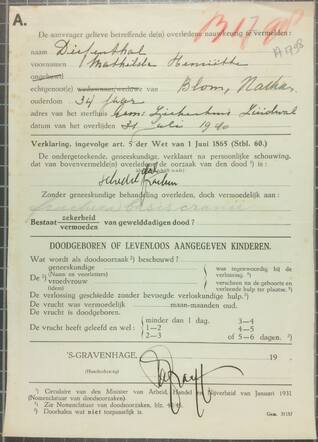 A.
De aanvrager gelieve betreffende de(n) overledene nauwkeurig te vermelden:
B1798
A1798
naam Diefenthal
voornamen Mathilde Henriëtte
ongehuwd
echtgenoot(e) weduwnaar/weduwe van Blom, Nathan
ouderdom 34 jaar
adres van het sterfhuis Gem. Ziekenhuis Zuidwal
datum van het overlijden 31 Juli 1940
Verklaring, ingevolge art. 5 der Wet van 1 Juni 1865 (Stbl. 60).
De ondergeteekende, geneeskundige, verklaart na persoonlijke schouwing,
dat van bovenvermelde(n) overledene de oorzaak van den dood ¹) is:
schedel
Zonder geneeskundige behandeling overleden, doch vermoedelijk aan:
fractura basis cranii
Bestaat zekerheid/vermoeden van gewelddadigen dood?
DOODGEBOREN OF LEVENLOOS AANGEGEVEN KINDEREN.
Wat wordt als doodsoorzaak ²) beschouwd?
De ³) geneeskundige (Naam en voorletters) vroedvrouw (idem)
was tegenwoordig bij de verlossing. ³)
verscheen na de geboorte en verleende hulp ter plaatse. ³)
De verlossing geschiedde zonder bevoegde verloskundige hulp. ³)
De vrucht was vermoedelijk maanden oud.
De vrucht is doodgeboren.
De vrucht heeft geleefd en wel:
minder dan 1 dag. 3—4
1—2 4—5
2—3 of 5—6 dagen. ³)
'S-GRAVENHAGE, 19
(Handteekening)
¹) Circulaire van den Minister van Arbeid, Handel en Nijverheid van Januari 1931
²) Zie Nomenclatuur van doodsoorzaken,
³) Doorhalen wat niet toepasselijk is.
Gem. 31157